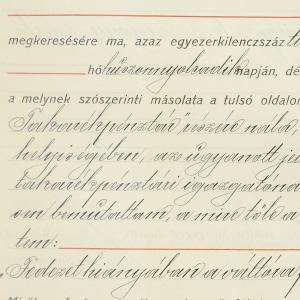 megkeresésére ma, azaz egyezerkilenczszáz
hó huszonnyolcadik napján, dé
a melynek szószerinti másolata a tulsó oldalon
Takarékpénztár" részére nála
helyiségében, az ugyanott je
takarékpénztári igazgatóna
om bemutattam, a mire tőle a
tem:
Fedezet hiányában a váltó na